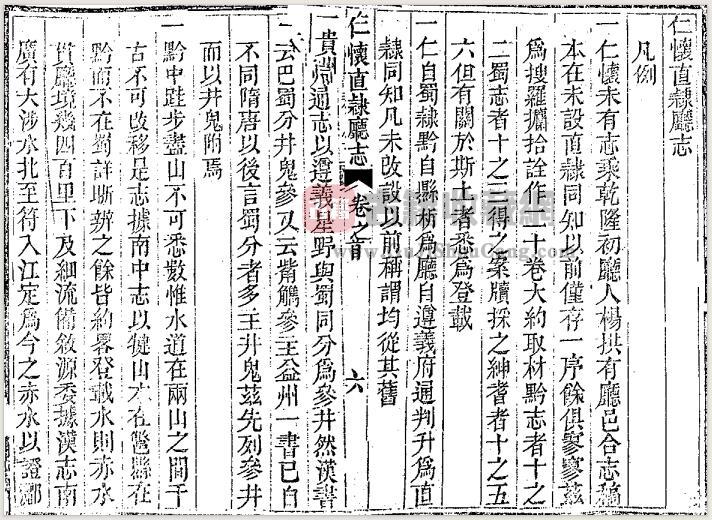 仁懷直隸廳志
凡例
一仁懷未有志乘乾隆初廳人楊拱有廳邑合志稿
本在未設直隸同知以前僅存一序餘俱寥寥茲
為搜羅攟拾詮作二十卷大約取材黔志者十之
二蜀志者十之三得之案牘採之紳耆者十之五
六但有關於斯土者悉為登載
一仁自蜀隸黔自縣析為廳自遵義府通判升為直
隸同知凡未改設以前稱謂均從其舊
仁懷直隸廳志 卷之首 六
一貴州通志以遵義星野與蜀同分為參井然漢書
云巴蜀分井鬼參又云觜觿參主益州一書已自
不同隋唐以後言蜀分者多主井鬼茲先列參井
而以井鬼附焉
一黔中跬步盡山不可悉數惟水道在兩山之間千
古不可改移是志據南中志以犍山水在鄨縣在
黔而不在蜀詳晰辨之餘皆約畧登載水則赤水
貫廳境幾四百里下及細流備敘源委據漢志南
廣有大涉水北至符入江定為今之赤水以證酈